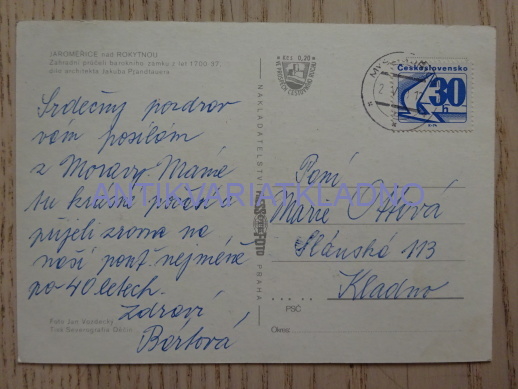 JAROMĚŘICE nad ROKYTNOU
Zahradní průčelí barokního zámku z let 1700-37,
dílo architekta Jakuba Prandtauera
KčS 0,20
NAKLADATELSTVÍ
PRAHA
Československo
30
h
Srdečný pozdrav
vám posílám
z Moravy. Máme
tu krásné počasí a
přijeli zrovna na
naší pouť nejméně
po 40 letech.
Zdraví
Bartová
Paní
Marie Ottová
Slánská 113
Kladno
PSČ
Okres
Foto Jan
Tisk Severografia Děčín
ANTIKVARIATKLADNO